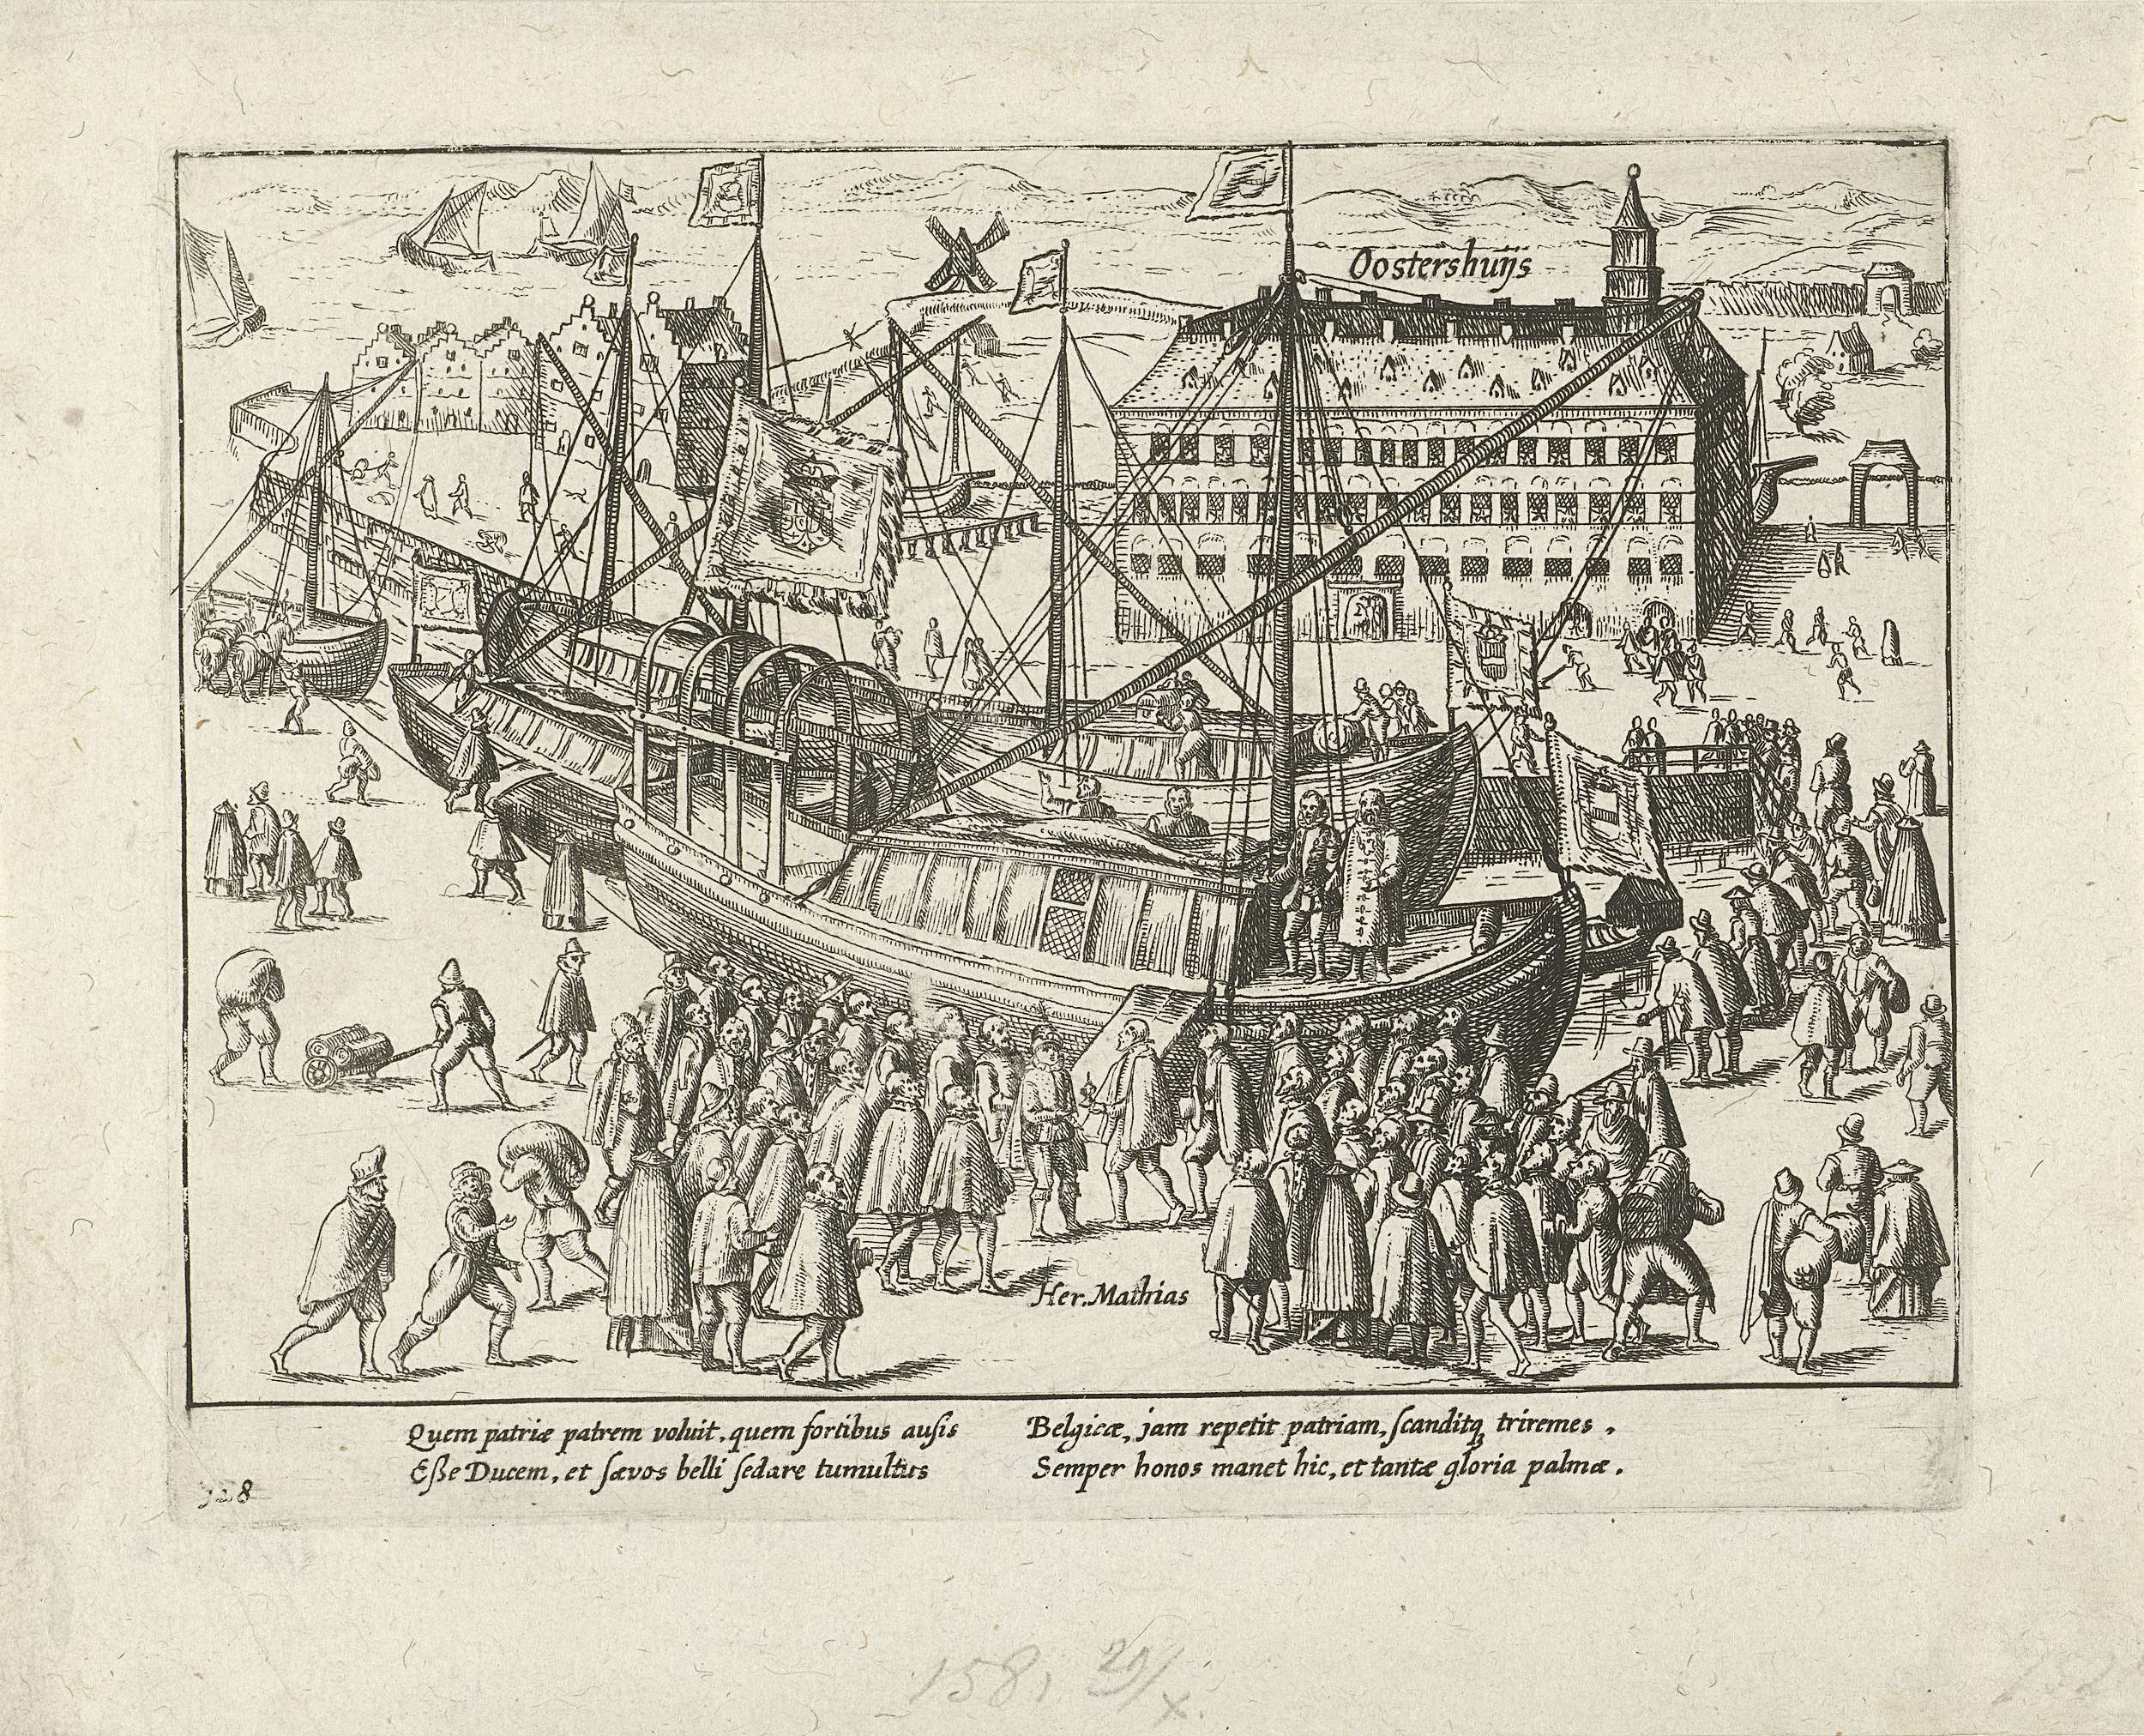 Oostershuijs
Her. Mathias
Quem patriæ patrem voluit, quem fortibus ausis
Eſſe Ducem, et ſævos belli ſedare tumultus
Belgicæ, jam repetit patriam, ſcanditq triremes.
Semper honos manet hic, et tantæ gloria palmæ.
128
1581 29/x.